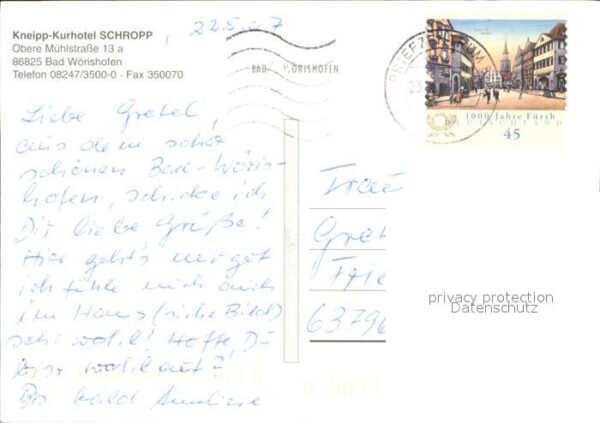 Kneipp-Kurhotel SCHROPP
Obere Mühlstraße 13 a
86825 Bad Wörishofen
Telefon 08247/3500-0 · Fax 350070
, 22.5.07
BAD WÖRISHOFEN
BRIEFZENTRUM
23
1000 Jahre Fürth
DEUTSCHLAND
45
Liebe Gretel,
aus dem sehr
schönen Bad-Wöris-
hofen, schicke ich
Dir liebe Grüße!
Hier geht's mir gut
ich fühle mich auch
im Haus (siehe Bild)
sehr wohl! Hoffe, Du
bist wohlauf?
Bis bald Anneliese
Frau
Gret
Frie
63796
privacy protection
Datenschutz